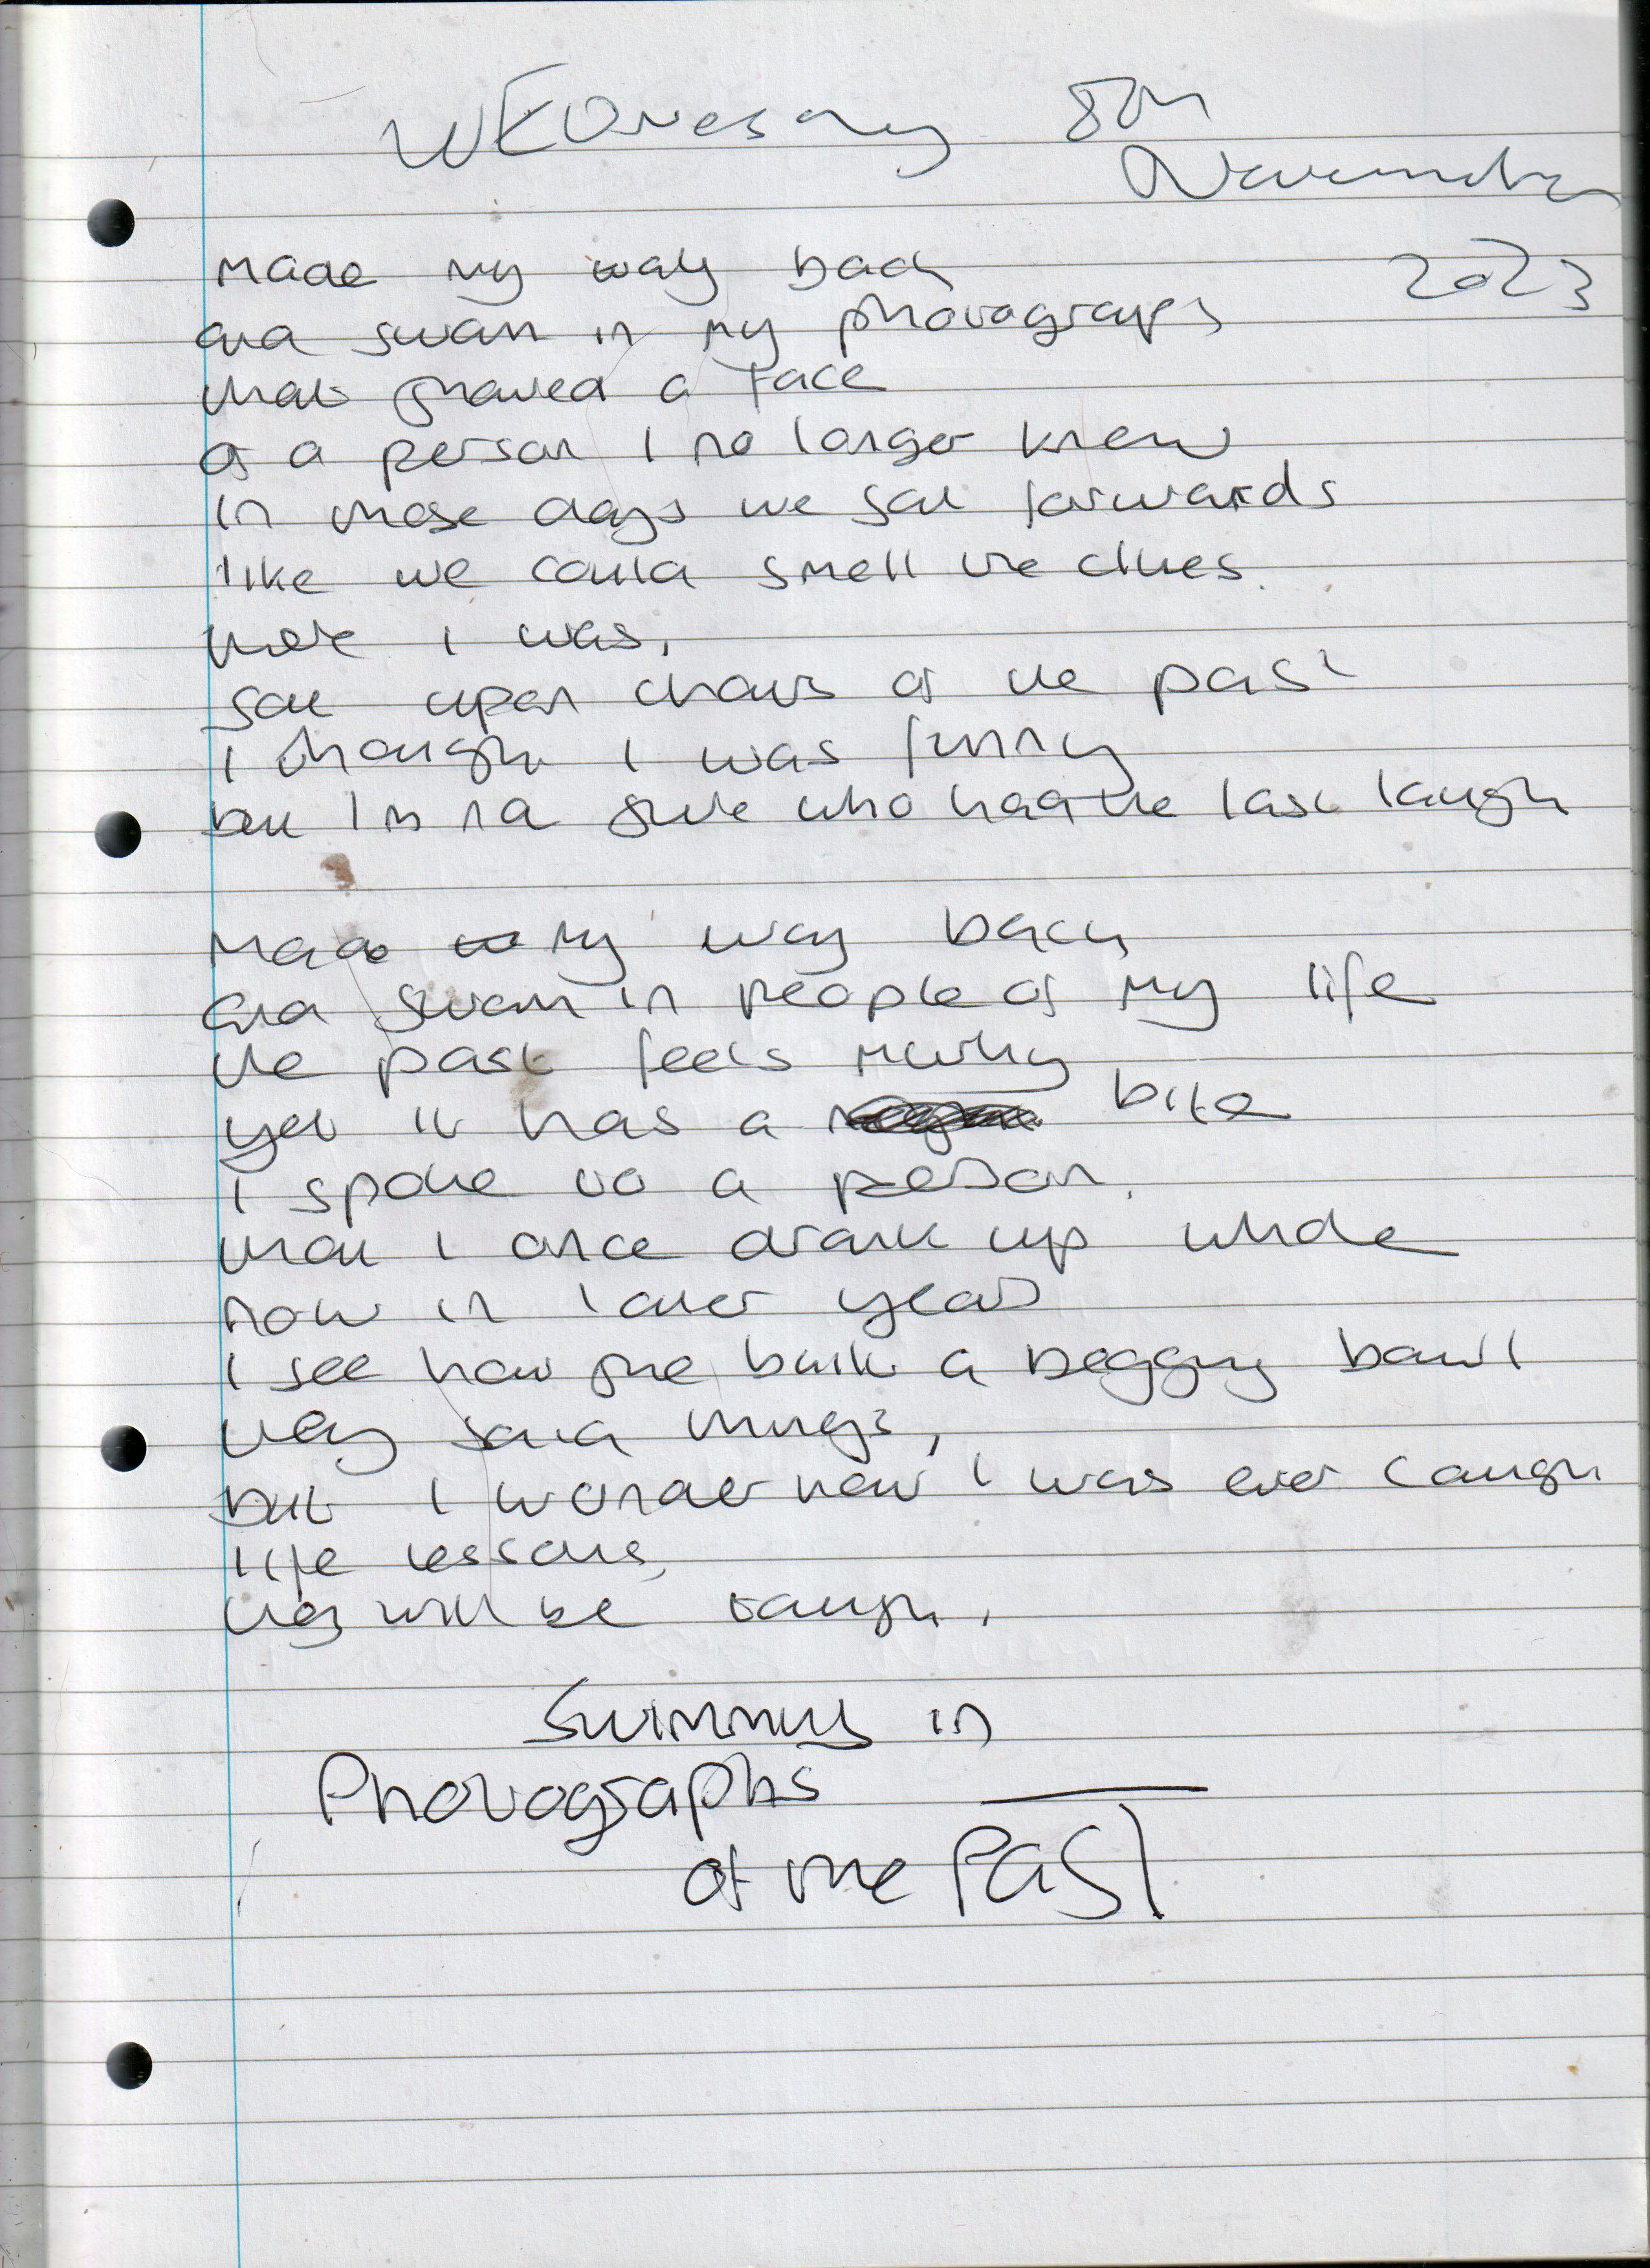 Wednesday 8th
November
2023
Made my way back
and swam in my photograps
that shared a face
of a person I no longer knew
in those days we sat forwards
like we could smell the clues.
there I was,
sat upon chairs of the past
I thought I was funny
but Im not sure who had the last laugh
Made my way back
and swam in people of my life
the past feels murky
yet it has a bite
I spoke to a person,
that I once drank up whole
now in later years
I see how she built a begging bowl
they said things,
but I wonder how I was ever caught
life lessons,
they will be taught.
Swimming in
Photographs
of the PAST